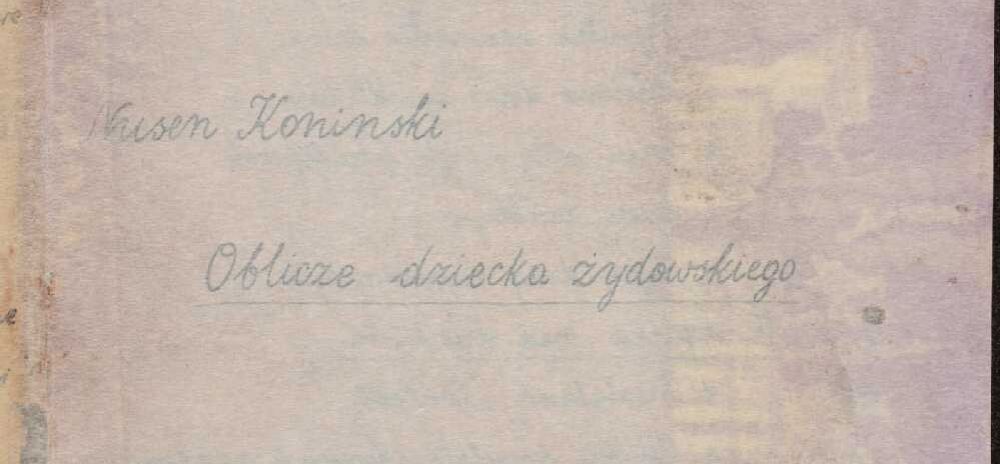 Nusen Koninski
Oblicze dziecka żydowskiego